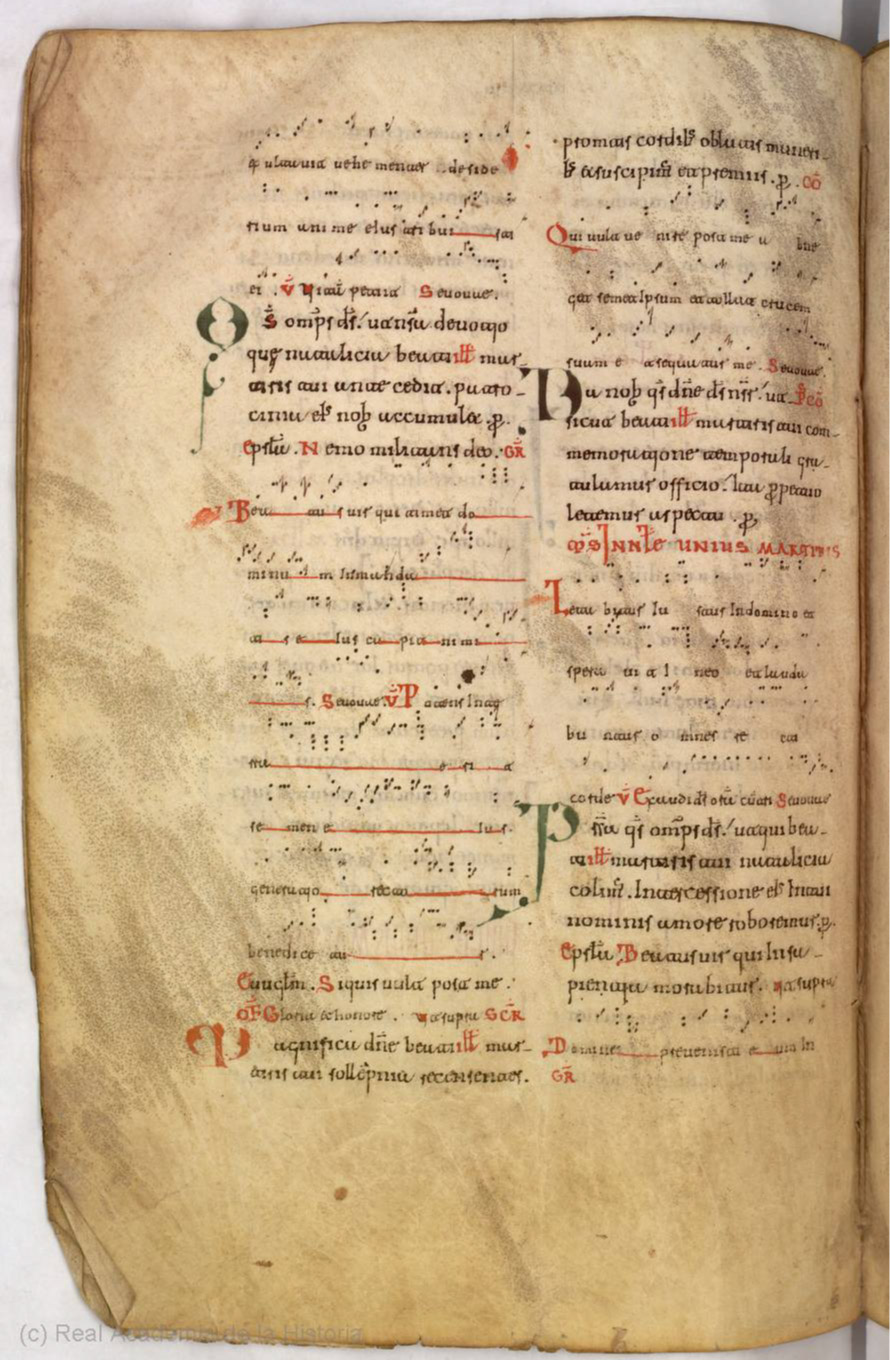 exultauit uehe menter deside
rium anime eius tri bui sti
ei . V Vitam petiit Seuouae.
qs omps ds. ut deuotio
que natalicia beati ill mar
tiris tui antecedit. patro
ciniu eis nob accumulet. p.
Epsta. Nemo militans deo. GR
Bea tus uir qui timet do
minu m In manda
tis e ius cu pit ni mi
s. Seuouae. V Potens In ter
ra e ri t
se men e ius.
generatio recto rum
benedice tu r.
Euuglm. Siquis uult post me.
OF Gloria et honore. ut supra SCR
Magnifica dne beati ill mar
tiris tui sollepnia recensentes.
promtis cordib; oblatis muneri
b; et suscipiat et premiis. p. CO
Qui uult ue nire post me a bne
get semetIpsum et tollat crucem
suum et sequatur me. Seuouae.
Da nob qs dne ds nr. ut PCO
sicut beati ill martiris tui com
memoratione temporali gra
tulamur officio. ita perpetuo
letemur aspectu. p.
MS IN NLE UNIUS MARTIRIS
Leta bitur Iu stus In domino et
spera bit In eo et lauda
bu ntur o mnes re cti
corde V Exaudi ds Seuouae
Psta qs omps ds. ut qui bea
ti ill martiris tui natalicia
colim. Intercessione eis In tui
nominis amore roboremur. p.
Epsta Beatus uir qui In sa
pientia morabitur. ut supra
Domine preuenisti eum In
GR
(c) Real Academia de la Historia